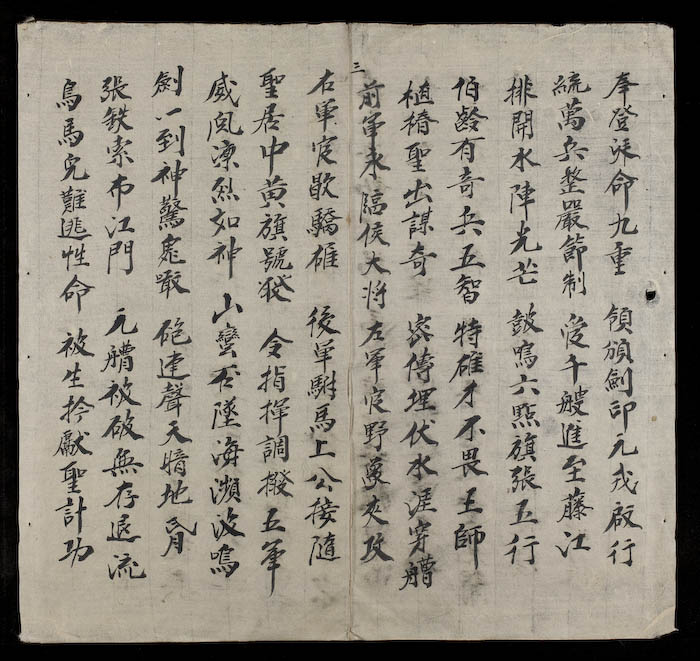 奉登命九重 領頒劍印元戎啟行
統萬兵整嚴節制 爰千艘進至藤江
排開水陣光芒 鼓鳴六點旗張五行
伯齡有奇兵五智 特雄才不畏王師
植樁聖出謀奇 密傳埋伏水涯穿艚
三
前軍永隘侯大將 左軍官野夾攻
右軍官歇驕雄 後軍駙馬上公接隨
聖居中黃旗號發 令指揮調撥五軍
威風凛烈如神 山巒石墜海瀕波鳴
劍一到神驚鬼 砲連聲天暗地
張鉄索布江門 元艚被破無存退流
烏馬兒難逃性命 被生擒獻聖計功